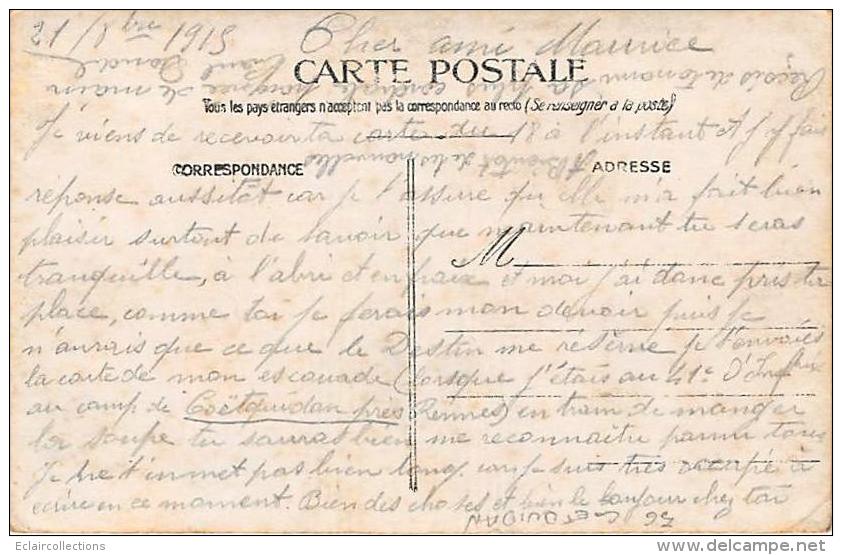 21/8bre 1915
Cher ami Maurice
CARTE POSTALE
Tous les pays étrangers n'acceptent pas la correspondance au recto (Se renseigner à la poste)
Je viens de recevoir ta carte du 18 à l'instant et j'y fais
CORRESPONDANCE
ADRESSE
réponse aussitôt car je t'assure qu'elle m'a fait bien
plaisir surtout de savoir que maintenant tu seras
M
tranquille, à l'abri et en paix et moi j'ai donc pris ta
place, comme toi je ferais mon devoir puis je
n'aurais que ce que le Destin me réserve je t'envoies
la carte de mon escouade (lorsque j'étais au 41e D'Inf
au camp de Coëtquidan près Rennes) en train de manger
la soupe tu sauras bien me reconnaître parmi tous
Je ne t'en met pas bien long, car je suis très occupé à
écrire en ce moment. Bien des choses et bien le bonjour chez toi
Reçois de ton ami la plus cordiale poignée de main
A Bientôt de tes nouvelles
56 COETQUIDAN
Eclaircollections
www.delcampe.net